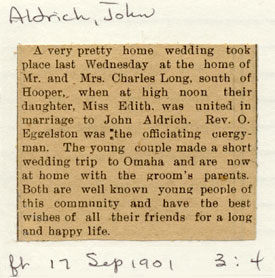 Aldrich, John
A very pretty home wedding took
place last Wednesday at the home of
Mr. and Mrs. Charles Long, south of
Hooper, when at high noon their
daughter, Miss Edith, was united in
marriage to John Aldrich. Rev. O.
Eggelston was the officiating clergy-
man. The young couple made a short
wedding trip to Omaha and are now
at home with the groom's parents.
Both are well known young people of
this community and have the best
wishes of all their friends for a long
and happy life.
17 Sep 1901 3:4